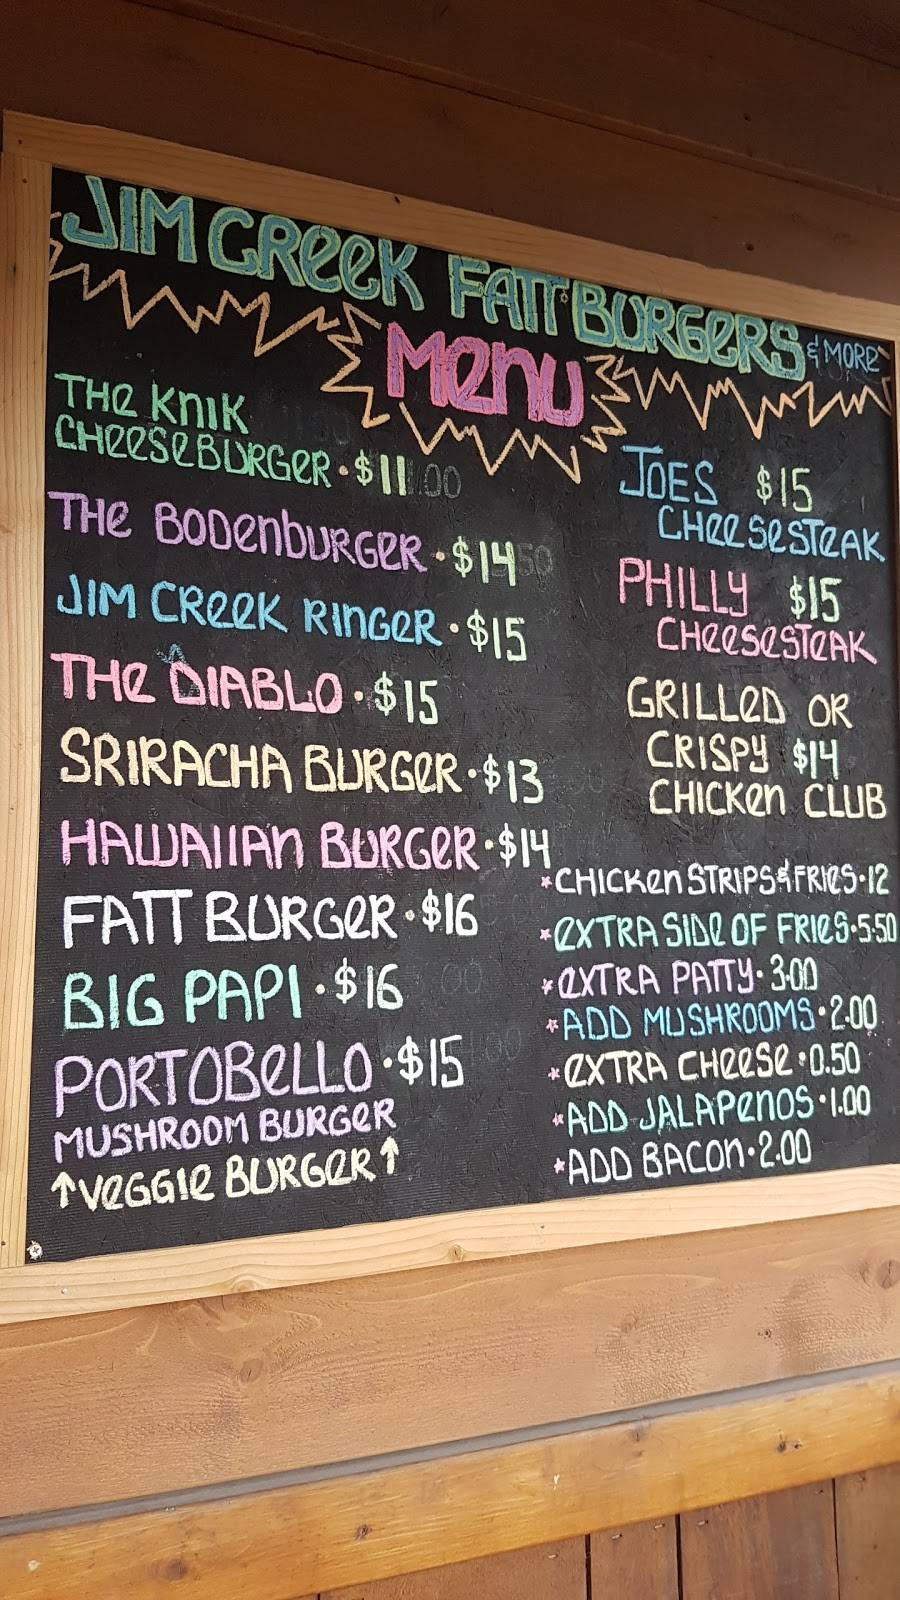 JIM CREEK FATT BURGERS & MORE
MENU
THE KNIK
CHEESEBURGER • $11
THE BODENBURGER • $14
JIM CREEK RINGER • $15
THE DIABLO • $15
SRIRACHA BURGER • $13
HAWAIIAN BURGER • $14
FATT BURGER • $16
BIG PAPI • $16
PORTOBELLO • $15
MUSHROOM BURGER
↑VEGGIE BURGER↑
JOES $15
CHEESESTEAK
PHILLY $15
CHEESESTEAK
GRILLED OR
CRISPY $14
CHICKEN CLUB
*CHICKEN STRIPS & FRIES • 12
*EXTRA SIDE OF FRIES • 5.50
*EXTRA PATTY • 3.00
*ADD MUSHROOMS • 2.00
*EXTRA CHEESE • 0.50
*ADD JALAPENOS • 1.00
*ADD BACON • 2.00